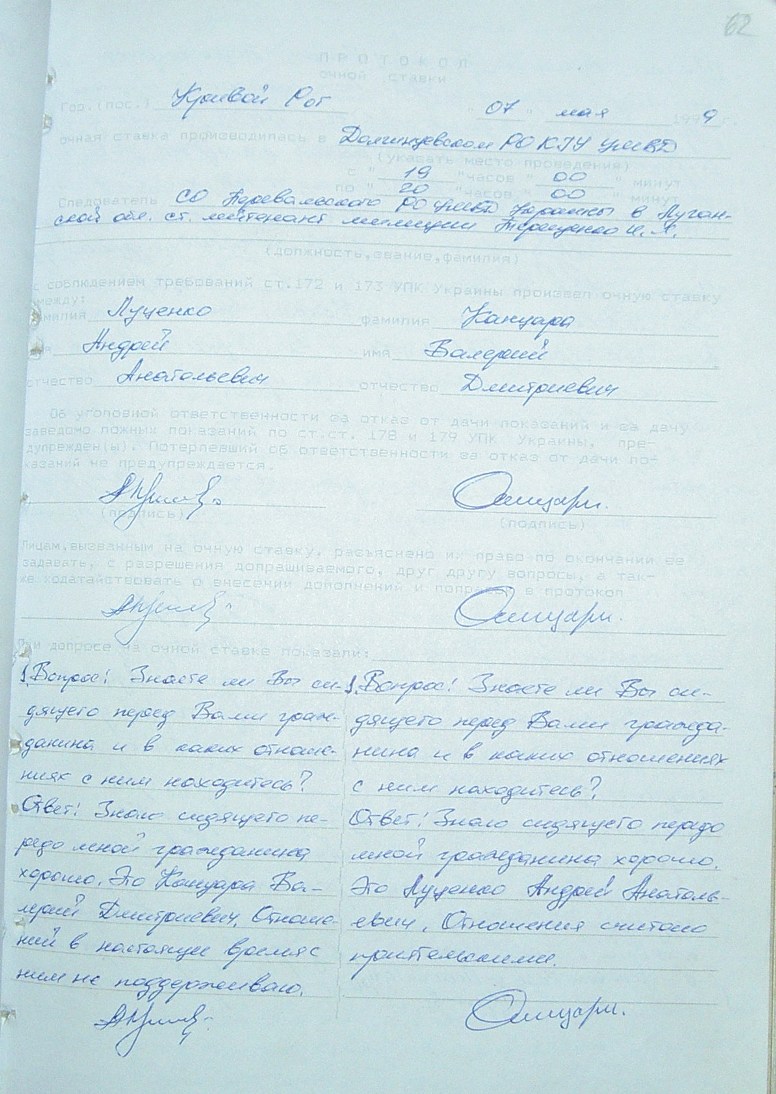 62
П Р О Т О К О Л
очной ставки
Гор.(пос.) Кривой Рог "07" мая 1999 г.
очная ставка производилась в Долгинцевском РО КГУ УМВД
(указать место проведения)
с "19" часов "00" минут
по "20" часов "00" минут
Следователь СО Перевальского РО УМВД Украины в Луган-
ской обл. ст. лейтенант милиции Терещенко
(должность, звание, фамилия)
с соблюдением требований ст.172 и 173 УПК Украины произвел очную ставку
между:
фамилия Луценко фамилия Канцара
имя Андрей имя Валерий
отчество Анатольевич отчество Дмитриевич
Об уголовной ответственности за отказ от дачи показаний и за дачу
заведомо ложных показаний по ст.ст. 178 и 179 УПК Украины, пре-
дупрежден(ы). Потерпевший об ответственности за отказ от дачи по-
казаний не предупреждается.
(подпись) (подпись)
Лицам, вызванным на очную ставку, разъяснено их право по окончании ее
задавать, с разрешения допрашиваемого, друг другу вопросы, а так-
же ходатайствовать о внесении дополнений и поправок в протокол
При допросе на очной ставке показали:
1. Вопрос: Знаете ли Вы си-
дящего перед Вами граж-
данина и в каких отноше-
ниях с ним находитесь?
Ответ: Знаю сидящего пе-
редо мной гражданина
хорошо. Это Канцара Ва-
лерий Дмитриевич. Отноше-
ний в настоящее время с
ним не поддерживаю.
1. Вопрос: Знаете ли Вы си-
дящего перед Вами гражда-
нина и в каких отношениях
с ним находитесь?
Ответ: Знаю сидящего передо
мной гражданина хорошо.
Это Луценко Андрей Анатоль-
евич. Отношения считаю
приятельскими.